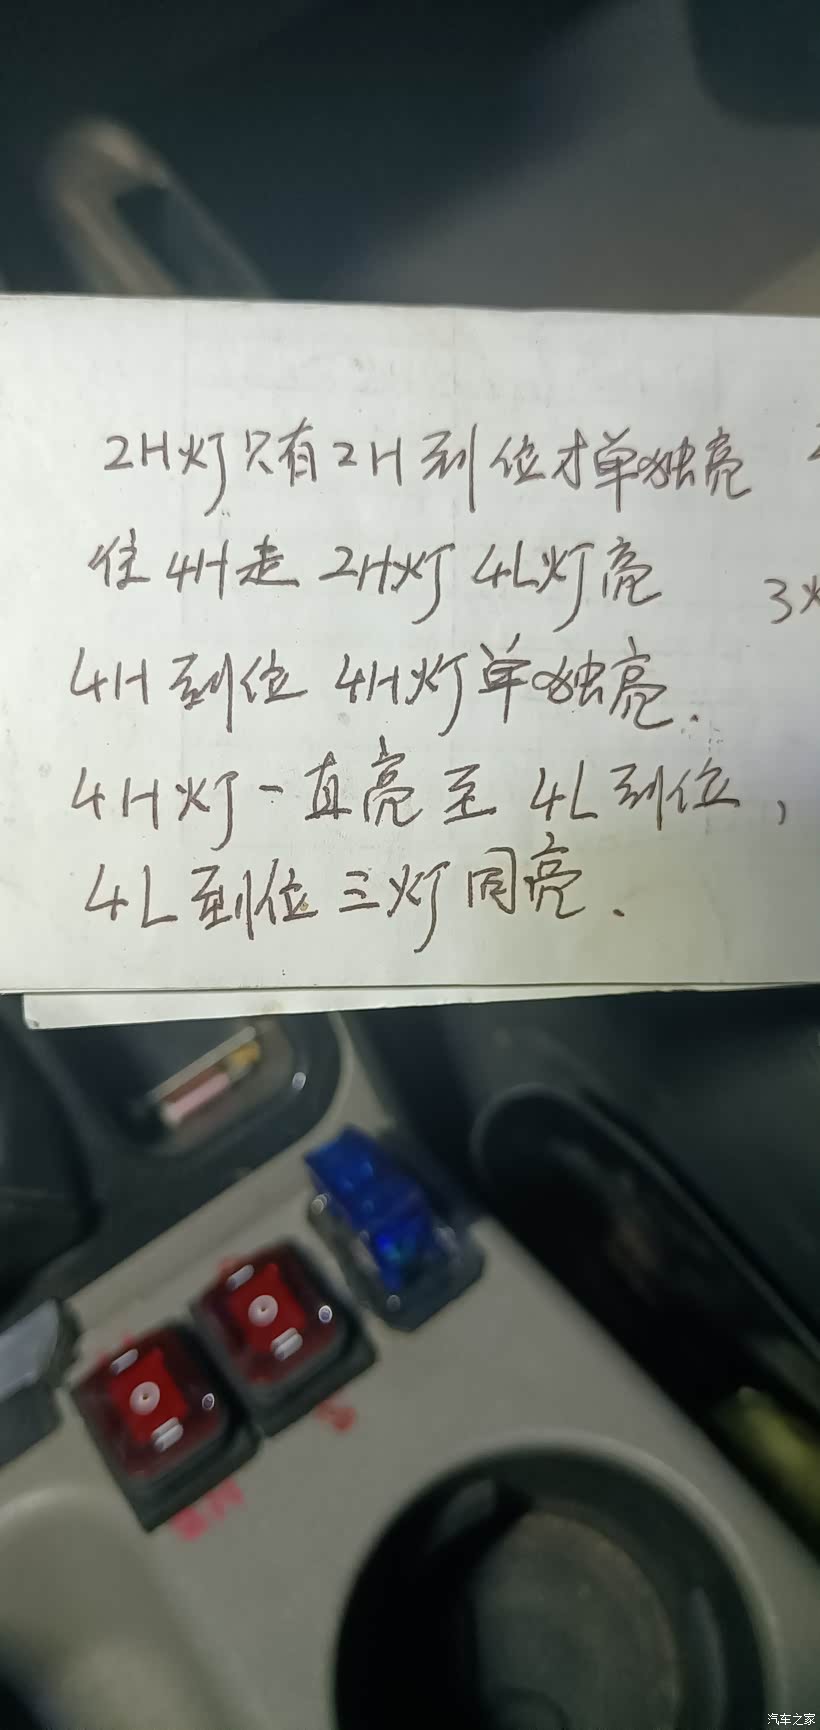 2H灯只有2H到位才单独亮
住4H走 2H灯 4L灯亮
3
4H到位 4H灯单独亮.
4H灯一直亮至 4L到位,
4L到位三灯同亮.
汽车之家